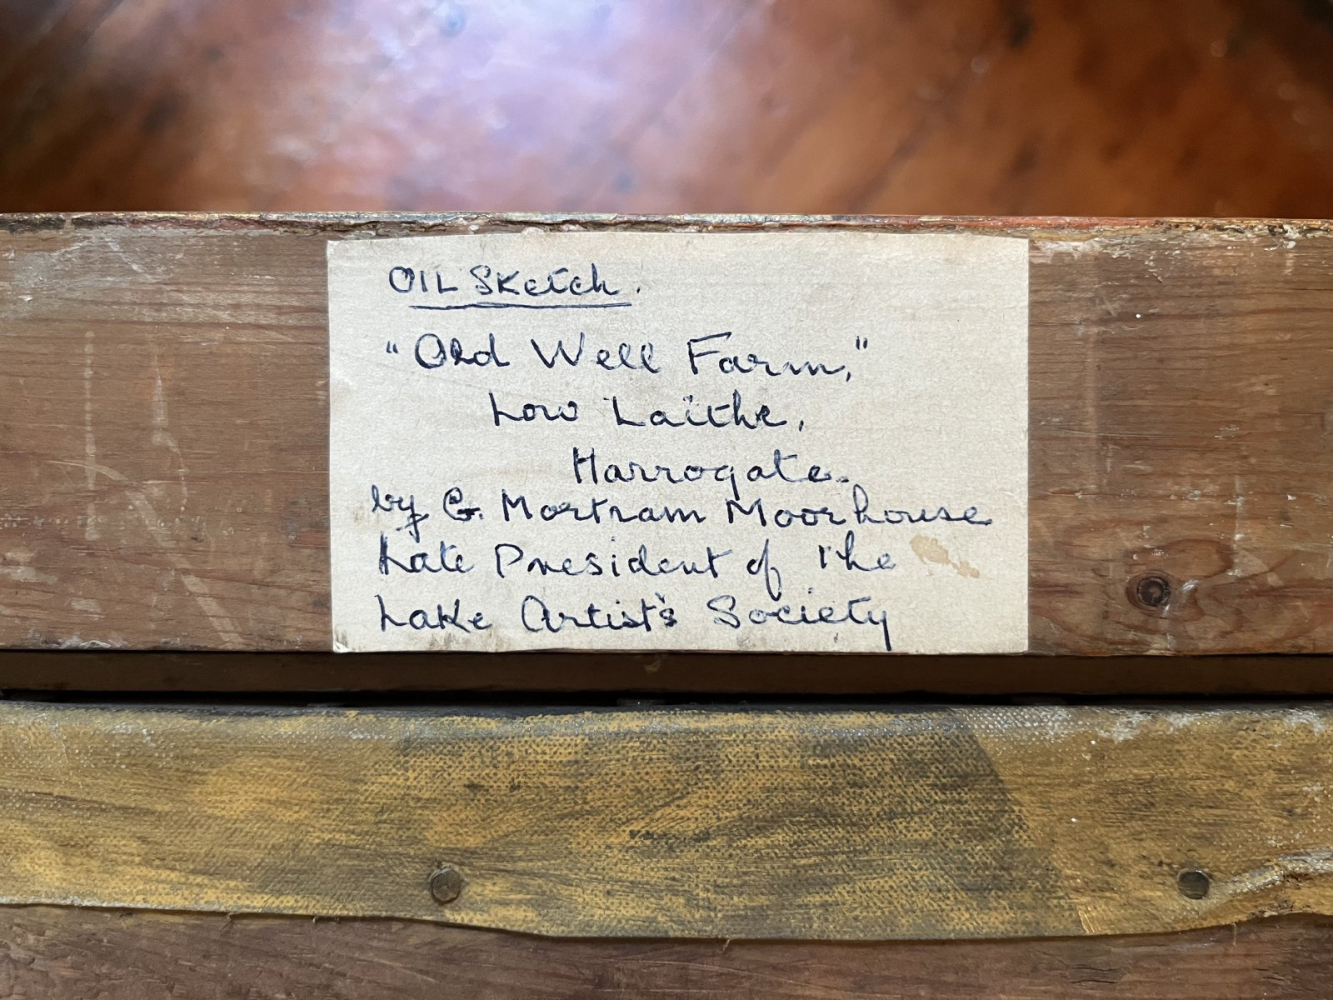 OIL Sketch.
"Old Well Farm,"
Low Laithe,
Harrogate.
by G. Mortram Moorhouse
Late President of the
Lake Artist's Society